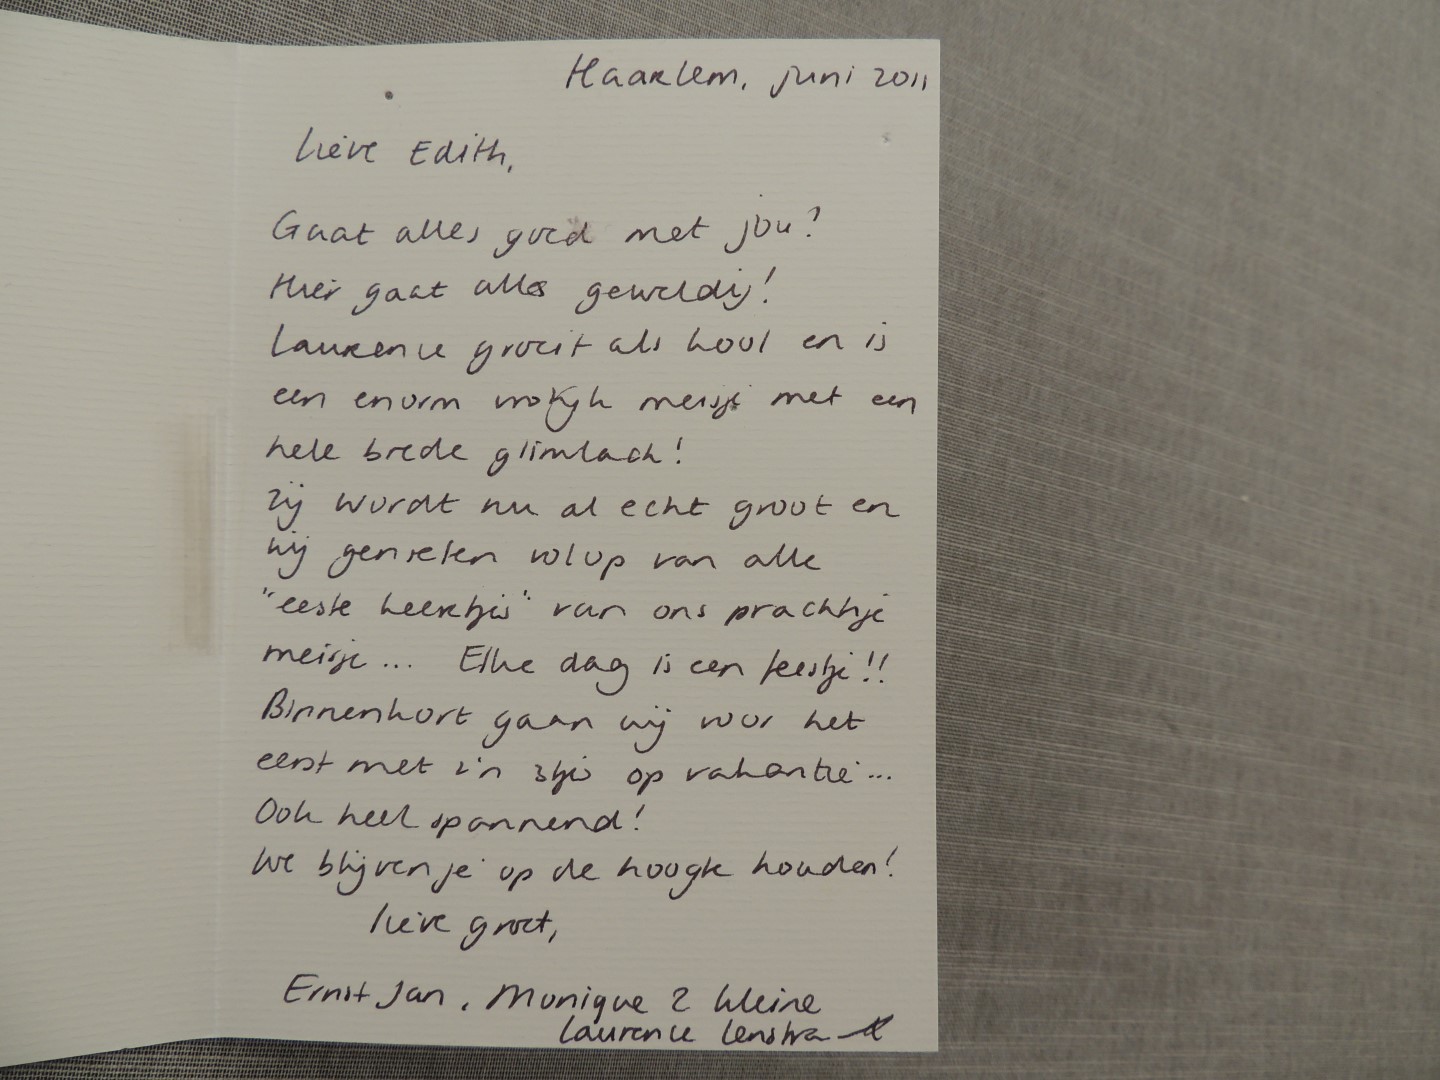 Haarlem, juni 2011
Lieve Edith,
Gaat alles goed met jou?
Hier gaat alles geweldig!
Laurence groeit als kool en is
een enorm vrolijk meisje met een
hele brede glimlach!
Zij wordt nu al echt groot en
wij genieten volop van alle
"eeste keertjes" van ons prachtige
meisje... Elke dag is een feestje!!
Binnenkort gaan wij voor het
eerst met z'n 3tjes op vakantie...
Ook heel spannend!
We blijven je op de hoogte houden!
Lieve groet,
Ernst Jan, Monique & kleine
Laurence Lenstra